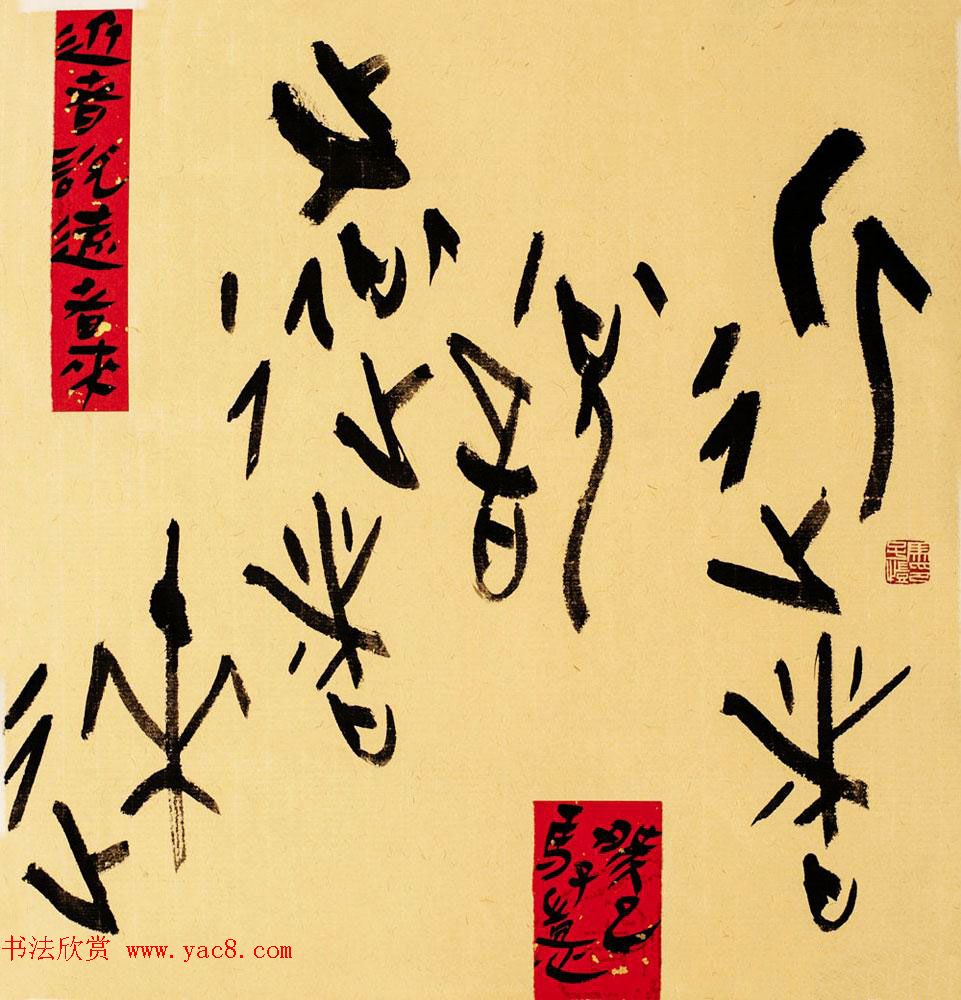 近者
說
遠者
來
近者說遠者來
癸巳
馬子愷
馬子愷印
书法欣赏 www.yac8.com